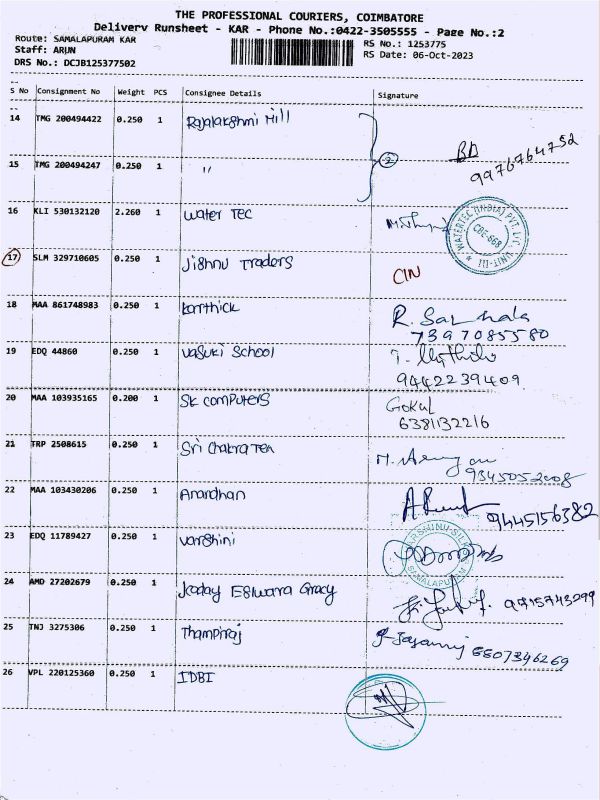 THE PROFESSIONAL COURIERS, COIMBATORE
Delivery Runsheet - KAR - Phone No.:0422-3505555 - Page No.:2
Route: SAMALAPURAM KAR
Staff: ARUN
DRS No.: DCJB125377502
RS No.: 1253775
RS Date: 06-Oct-2023
S No Consignment No Weight PCS Consignee Details Signature
14 TMG 200494422 0.250 1 Rajalakshmi Mill
2 BD 9976764752
15 TMG 200494247 0.250 1 "
16 KLI 530132120 2.260 1 Water TEC
WATERTEC (INDIA) PVT. LTD. CBE-668 UNIT-III
17 SLM 329710605 0.250 1 Jishnu Traders CIN
18 MAA 861748983 0.250 1 Karthick R. Sarmala
7397085580
19 EDQ 44860 0.250 1 Vasuki School
9442239409
20 MAA 103935165 0.200 1 SK computers Gokul
6381132216
21 TRP 2508615 0.250 1 Sri Chakra Tex
9345052008
22 MAA 103430206 0.250 1 Anandhan
9445156382
23 EDQ 11789427 0.250 1 Varshini
VARSHINI SILK SAMALAPURAM
24 AMD 27202679 0.250 1 Koday Eswara
9715743299
25 TNJ 3275306 0.250 1 Thampiraj
6507346269
26 VPL 220125360 0.250 1 IDBI